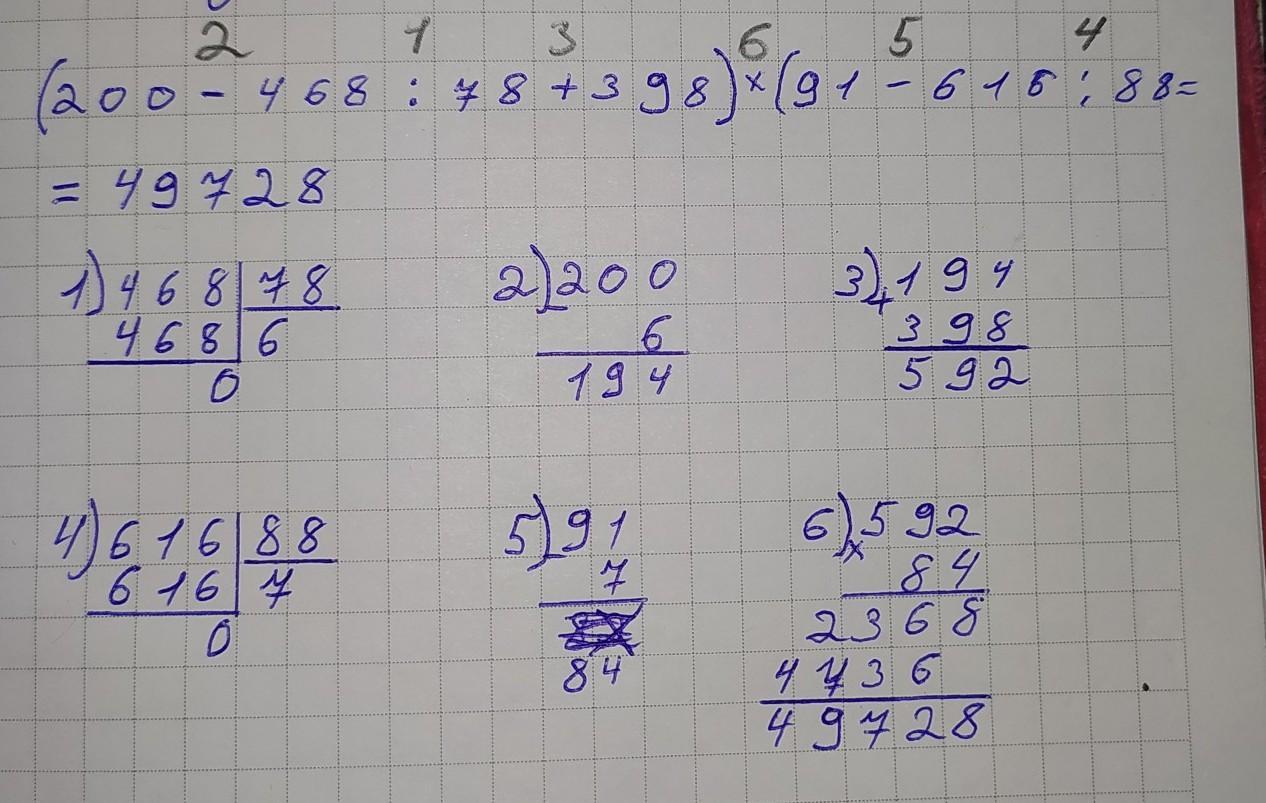 2 1 3 6 5 4
(200 - 468 : 78 + 398) × (91 - 616 : 88 =
= 49728
1) 468 | 78 2) 200 3) 194
468 | 6 - 6 + 398
0 194 592
4) 616 | 88 5) 91 6) 592
616 | 7 - 7 × 84
0 84 2368
4736
49728